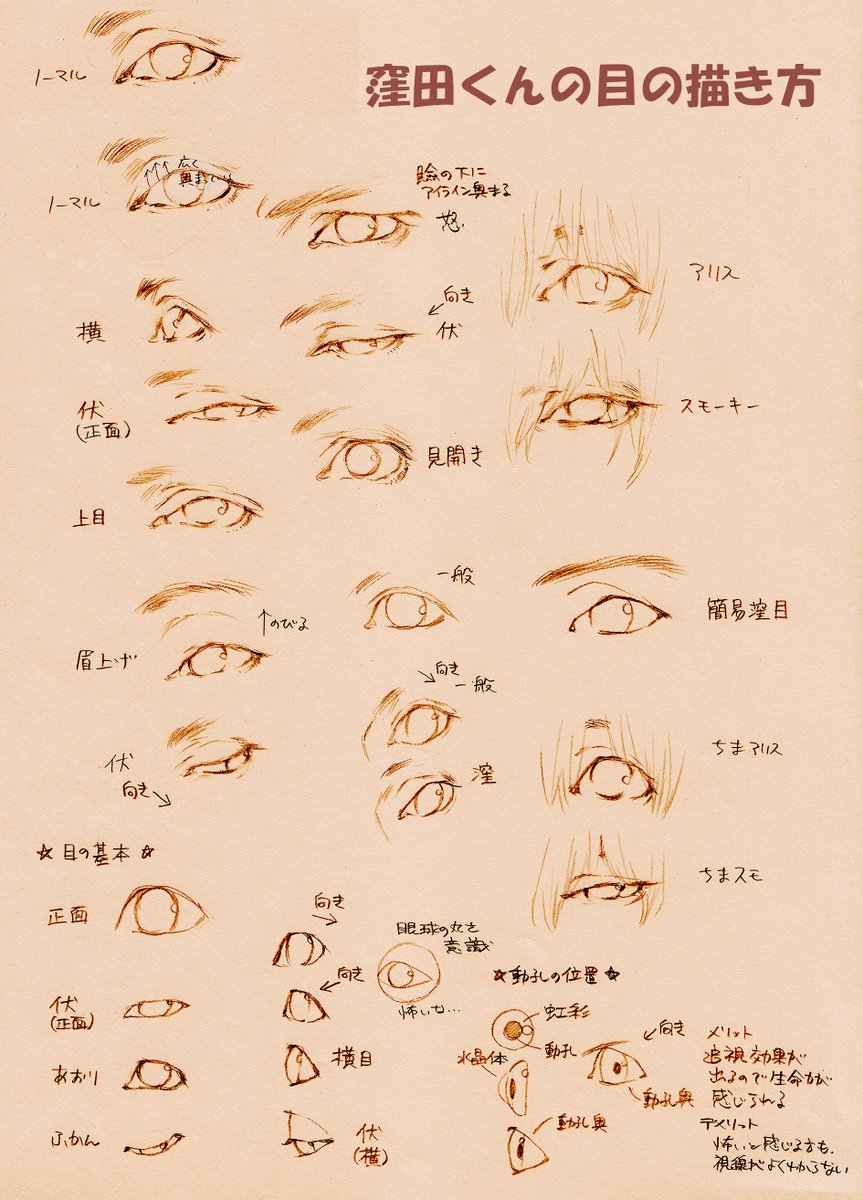 窪田くんの目の描き方
ノーマル
ノーマル
広く
瞼の下に
アイライン奥まる
怒
アリス
横
向き
伏
伏
(正面)
スモーキー
見開き
上目
一般
簡易窪目
↑のびる
眉上げ
向き
一般
伏
向き
窪
ちまアリス
☆目の基本☆
ちまスモ
正面
向き
眼球の丸さ
意識
怖いな…
伏
(正面)
向き
☆動孔の位置☆
虹彩
動孔
水晶体
向き
動孔奥
メリット
追視効果が
出るので生命力が
感じられる
あおり
横目
ふかん
伏
(横)
動孔奥
デメリット
怖いと感じる方も。
視線がよくわからない